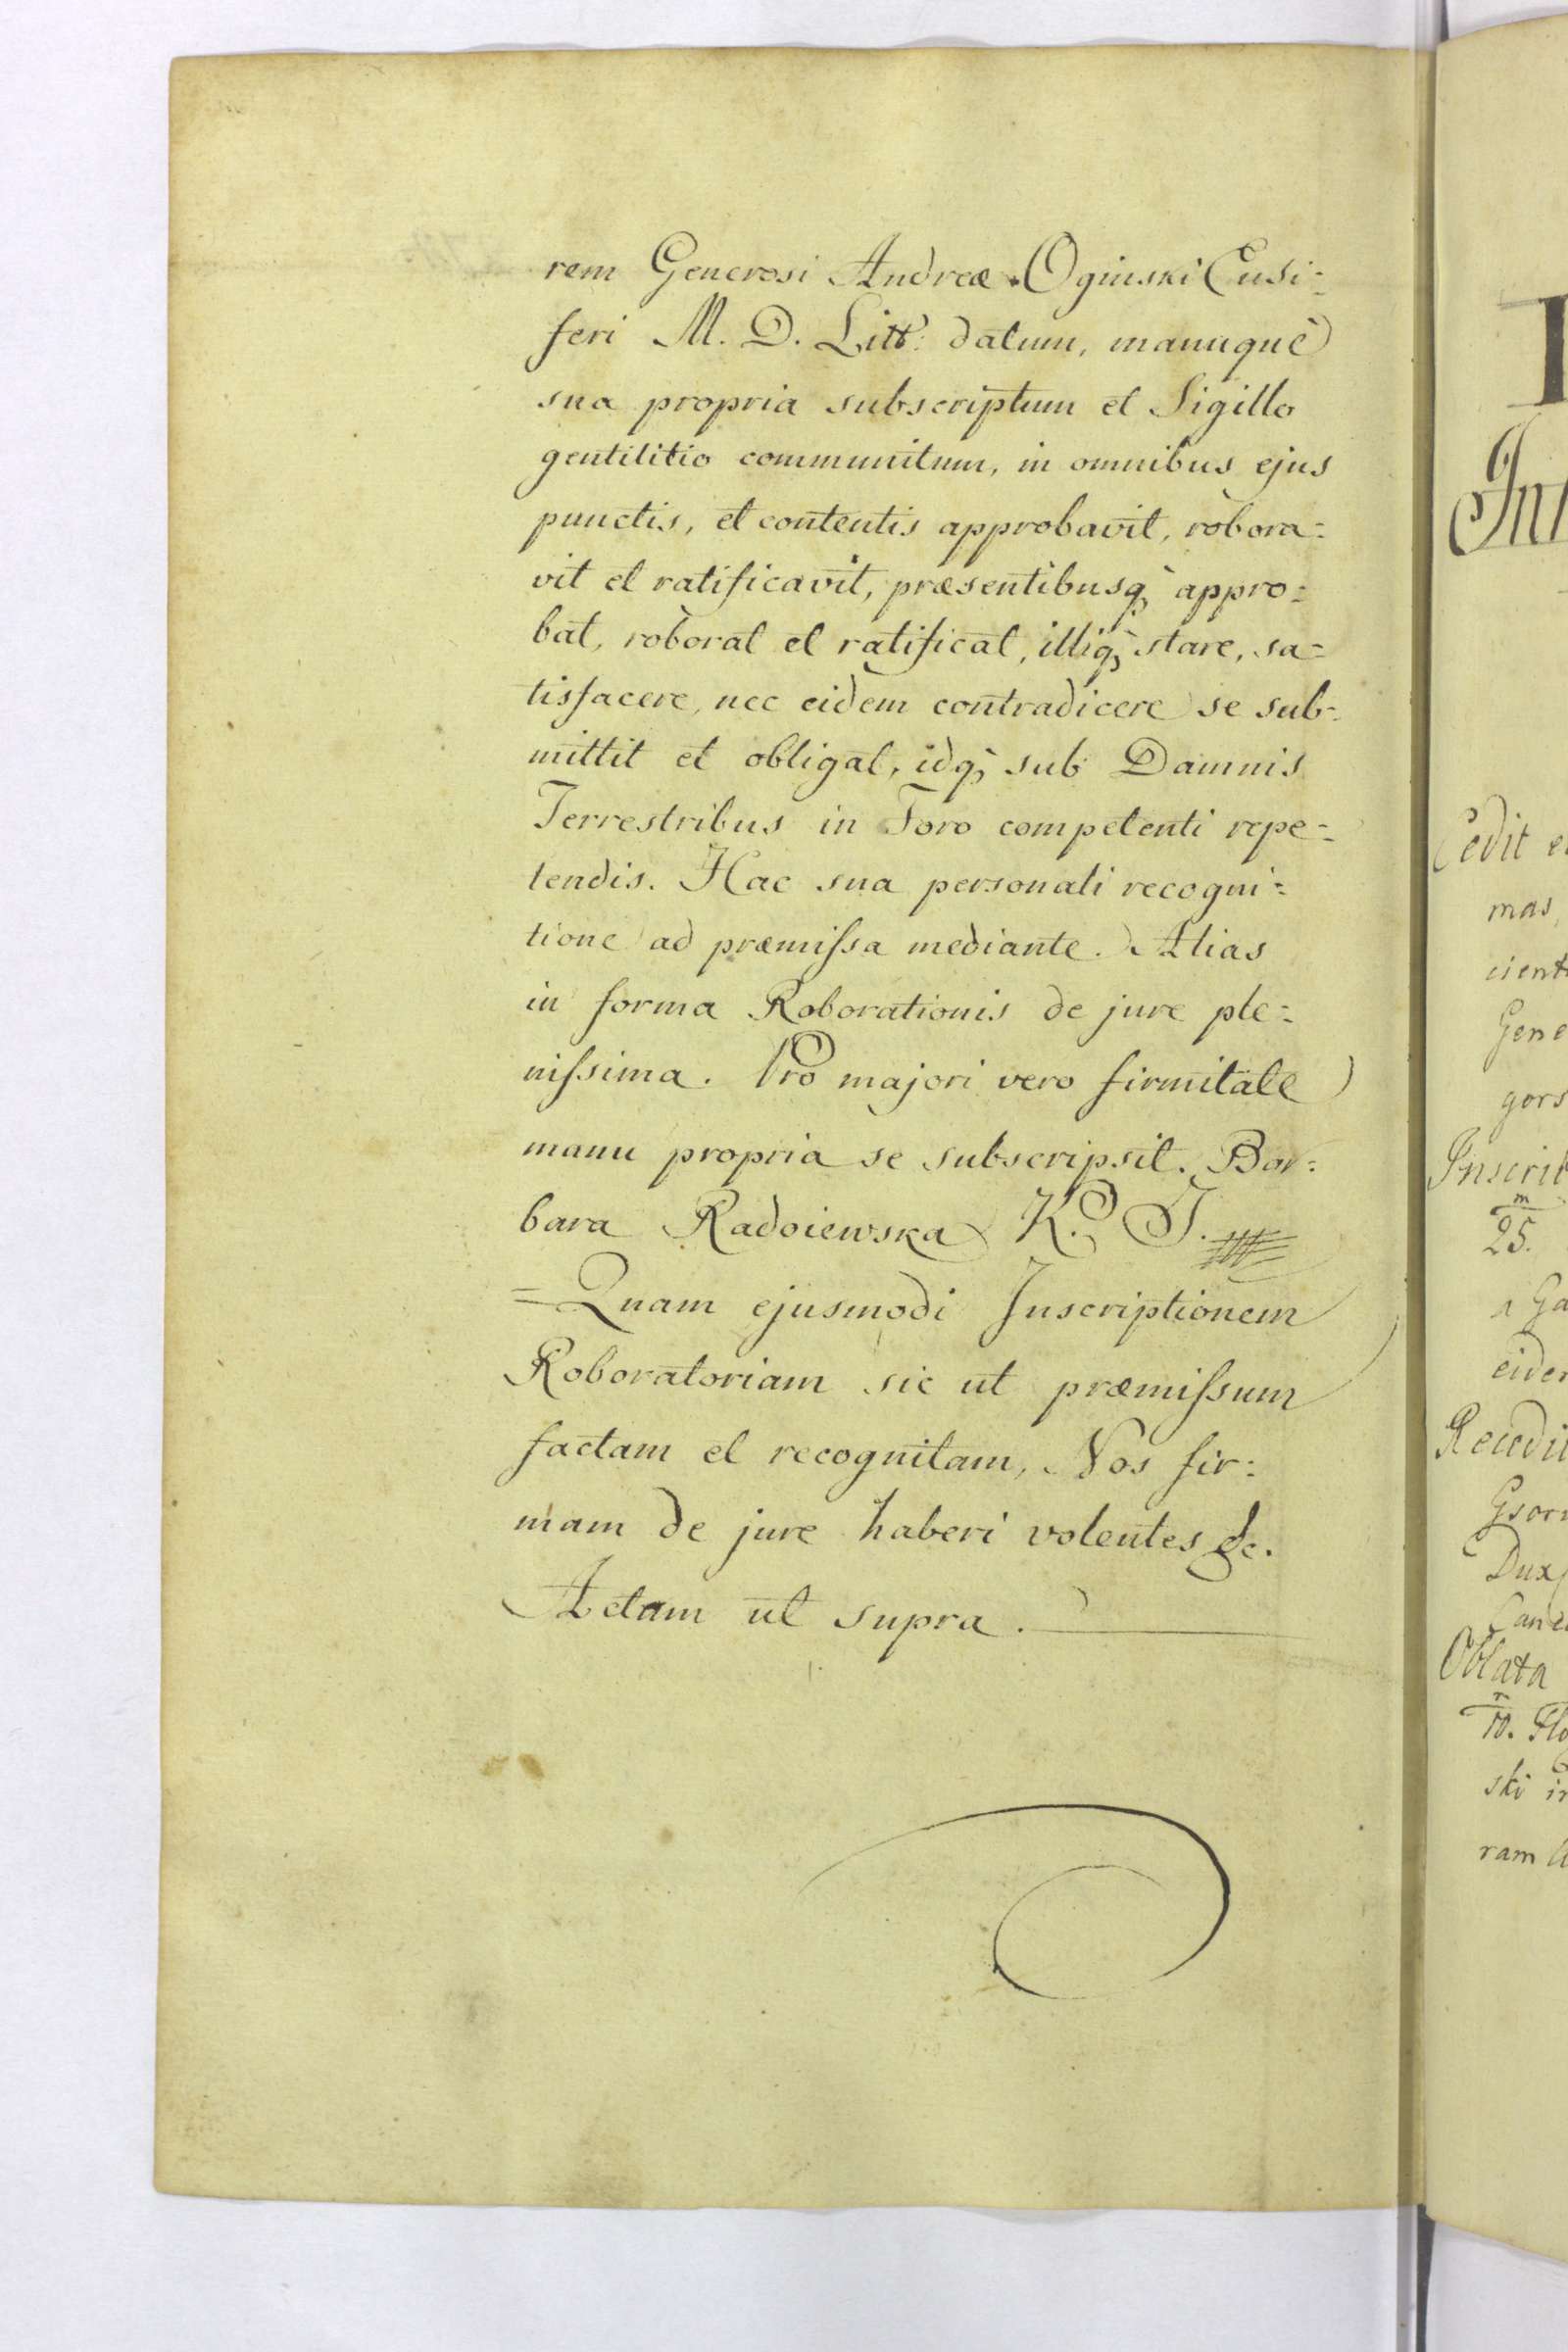 rem Generosi Andreæ Oginski Ensi=
feri M. D. Litt: datum, manuquè
sua propria subscriptum et Sigillo
gentilitio communitum, in omnibus ejus
punctis, et contentis approbavit, robora=
vit et ratificavit, præsentibusq; appro=
bat, roborat et ratificat, illiq; stare, sa=
tisfacere, nec eidem contradicere se sub=
mittit et obligat, idq; sub Damnis
Terrestribus in Foro competenti repe=
tendis. Hac sua personali recogni=
tione ad præmiſsa mediante. Alias
in forma Roborationis de jure ple=
niſsima. Pro majori vero firmitate
manu propria se subscripsit. Bar=
bara Radoiewska K. J.
=Quam ejusmodi Inscriptionem
Roboratoriam sic ut præmiſsum
factam et recognitam, Nos fir=
mam de jure haberi volentes &c.
Actum ut supra.
I
Int
Cedit e
mas,
cient
Gene
gors
Inscrib
m
25.
a Ga
eider
Recedit
Gsor
Dux
Canc
Oblata
m
10. Flo
ski in
ram